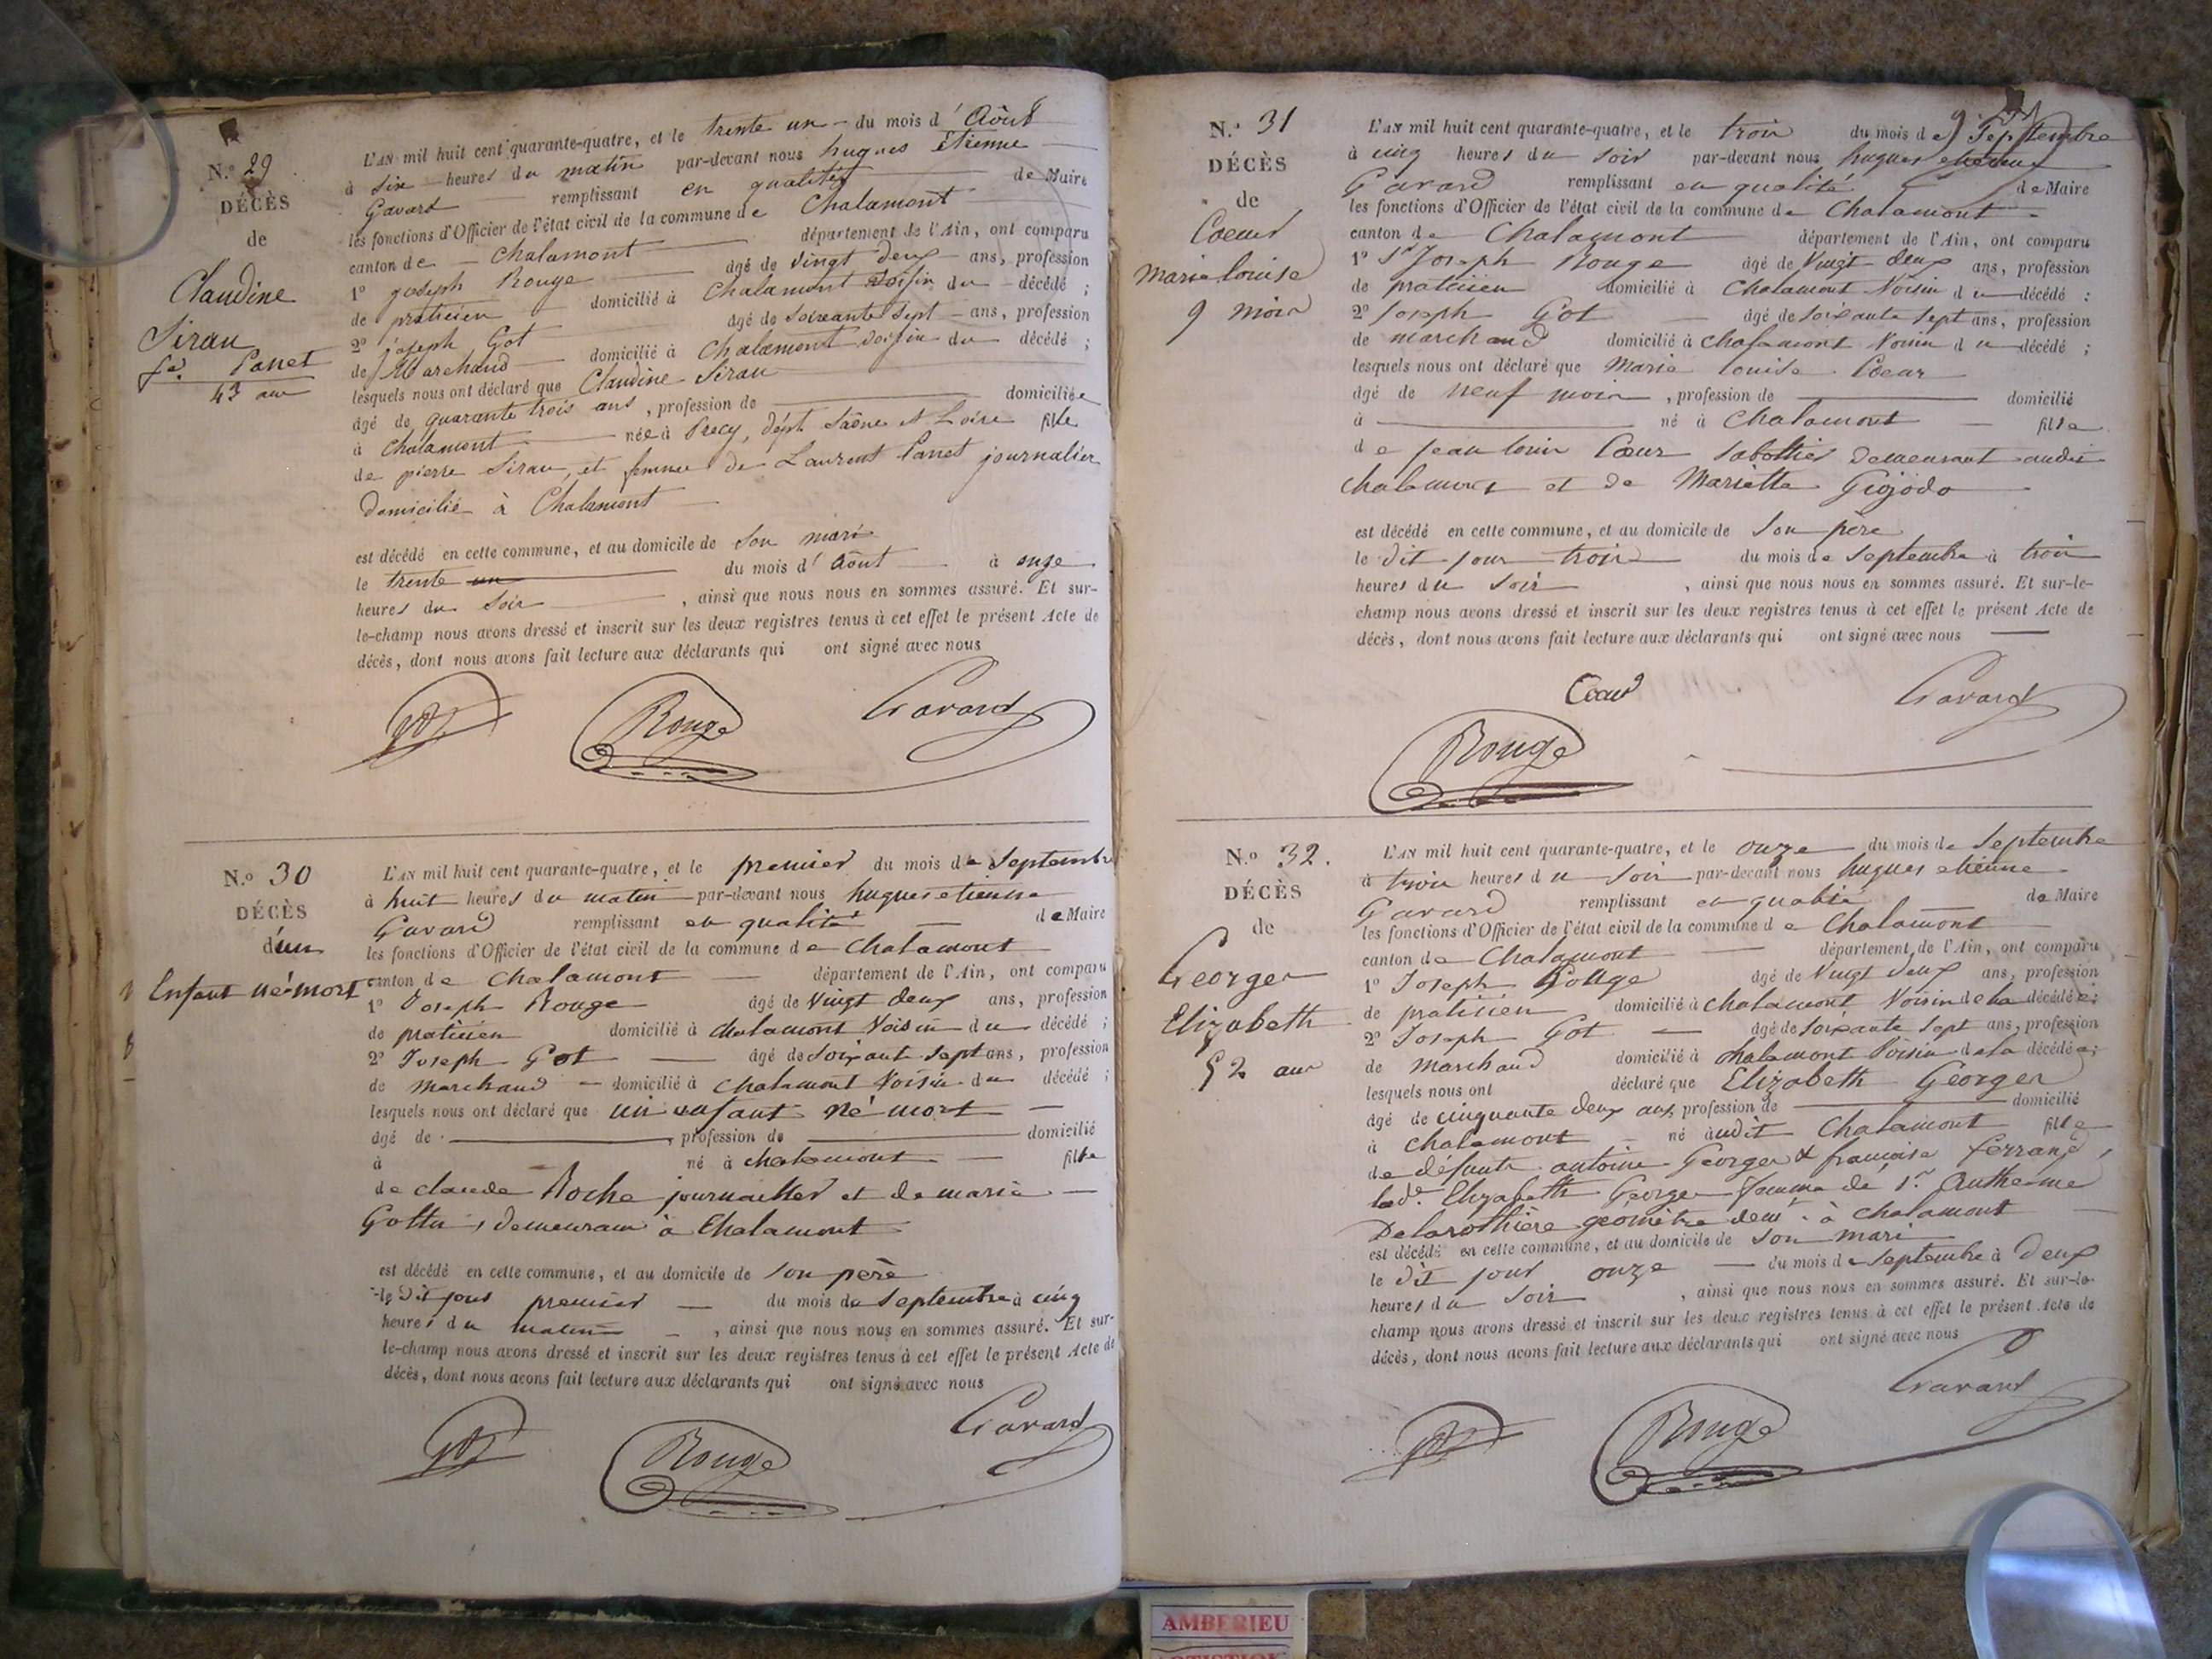 N.o 29
DÉCÈS
de
Claudine
Sirau
fe. Panet
43 ans
L'AN mil huit cent quarante-quatre, et le trente un du mois d'Août
à six heures du matin par-devant nous hugues étienne
Gavard remplissant en qualité de Maire
les fonctions d'Officier de l'état civil de la commune de Chalamont
canton de Chalamont département de l'Ain, ont comparu
1o joseph Rouge âgé de vingt deux ans, profession
de praticien domicilié à Chalamont voisin du décédé ;
2o joseph Got âgé de soixante sept ans, profession
de Marchand domicilié à Chalamont voisin du décédé ;
lesquels nous ont déclaré que Claudine Sirau
âgé de quarante trois ans, profession de domiciliée
à Chalamont née à Precy, dépt Saône et Loire fille
de pierre Sirau, et femme de Laurent Panet journalier
domicilié à Chalamont
est décédé en cette commune, et au domicile de son mari
le trente un du mois d'Août à onze
heures du soir, ainsi que nous nous en sommes assuré. Et sur-
le-champ nous avons dressé et inscrit sur les deux registres tenus à cet effet le présent Acte de
décès, dont nous avons fait lecture aux déclarants qui ont signé avec nous
Got Rouge Gavard
N.o 30
DÉCÈS
d'un
Enfant né-mort
L'AN mil huit cent quarante-quatre, et le premier du mois de Septembre
à huit heures du matin par-devant nous hugues etienne
Gavard remplissant en qualité de Maire
les fonctions d'Officier de l'état civil de la commune de Chalamont
canton de Chalamont département de l'Ain, ont comparu
1o Joseph Rouge âgé de vingt deux ans, profession
de praticien domicilié à Chalamont Voisin du décédé ;
2o Joseph Got âgé de soixante sept ans, profession
de marchand domicilié à Chalamont Voisin du décédé ;
lesquels nous ont déclaré que un enfant né mort
âgé de , profession de domicilié
à né à chalamont fils
de claude Roche journallier et de marie
Gottu, demeurant à Chalamont
est décédé en cette commune, et au domicile de son père
le dit jour premier du mois de Septembre à cinq
heures du matin, ainsi que nous nous en sommes assuré. Et sur-
le-champ nous avons dressé et inscrit sur les deux registres tenus à cet effet le présent Acte de
décès, dont nous avons fait lecture aux déclarants qui ont signé avec nous
Got Rouge Gavard
N.o 31
DÉCÈS
de
Coeur
Marie louise
9 mois
L'AN mil huit cent quarante-quatre, et le trois du mois de Septembre
à cinq heures du soir par-devant nous hugues etienne
Gavard remplissant en qualité de Maire
les fonctions d'Officier de l'état civil de la commune de Chalamont
canton de Chalamont département de l'Ain, ont comparu
1o Sr Joseph Rouge âgé de Vingt deux ans, profession
de praticien domicilié à Chalamont Voisin du décédé ;
2o Joseph Got âgé de soixante sept ans, profession
de marchand domicilié à chalamont Voisin du décédé ;
lesquels nous ont déclaré que Marie louise Coeur
âgé de neuf mois, profession de domicilié
à né à Chalamont fille
de jean louis Coeur sabottier demeurant audit
chalamont et de Mariette
est décédé en cette commune, et au domicile de son père
le dit jour trois du mois de septembre à trois
heures du soir, ainsi que nous nous en sommes assuré. Et sur-le-
champ nous avons dressé et inscrit sur les deux registres tenus à cet effet le présent Acte de
décès, dont nous avons fait lecture aux déclarants qui ont signé avec nous
Coeur Gavard
Rouge
N.o 32.
DÉCÈS
de
Georger
Elizabeth
52 ans
L'AN mil huit cent quarante-quatre, et le onze du mois de Septembre
à trois heures du soir par-devant nous hugues etienne
Gavard remplissant en qualité de Maire
les fonctions d'Officier de l'état civil de la commune de Chalamont
canton de Chalamont département de l'Ain, ont comparu
1o Joseph Rouge âgé de Vingt deux ans, profession
de praticien domicilié à Chalamont Voisin de la décédée ;
2o Joseph Got âgé de soixante sept ans, profession
de marchand domicilié à chalamont Voisin de la décédée ;
lesquels nous ont déclaré que Elizabeth Georger
âgé de cinquante deux ans, profession de domicilié
à chalamont né audit Chalamont fille
de défunts antoine Georger & francoise ferrand,
lade. Elizabeth Georger femme de Sr. Anthelme
Delarothière géomètre demt. à chalamont
est décédé en cette commune, et au domicile de son mari
le dit jour onze du mois de septembre à Deux
heures du soir, ainsi que nous nous en sommes assuré. Et sur-le-
champ nous avons dressé et inscrit sur les deux registres tenus à cet effet le présent Acte de
décès, dont nous avons fait lecture aux déclarants qui ont signé avec nous
Gavard
Got Rouge
AMBERIEU